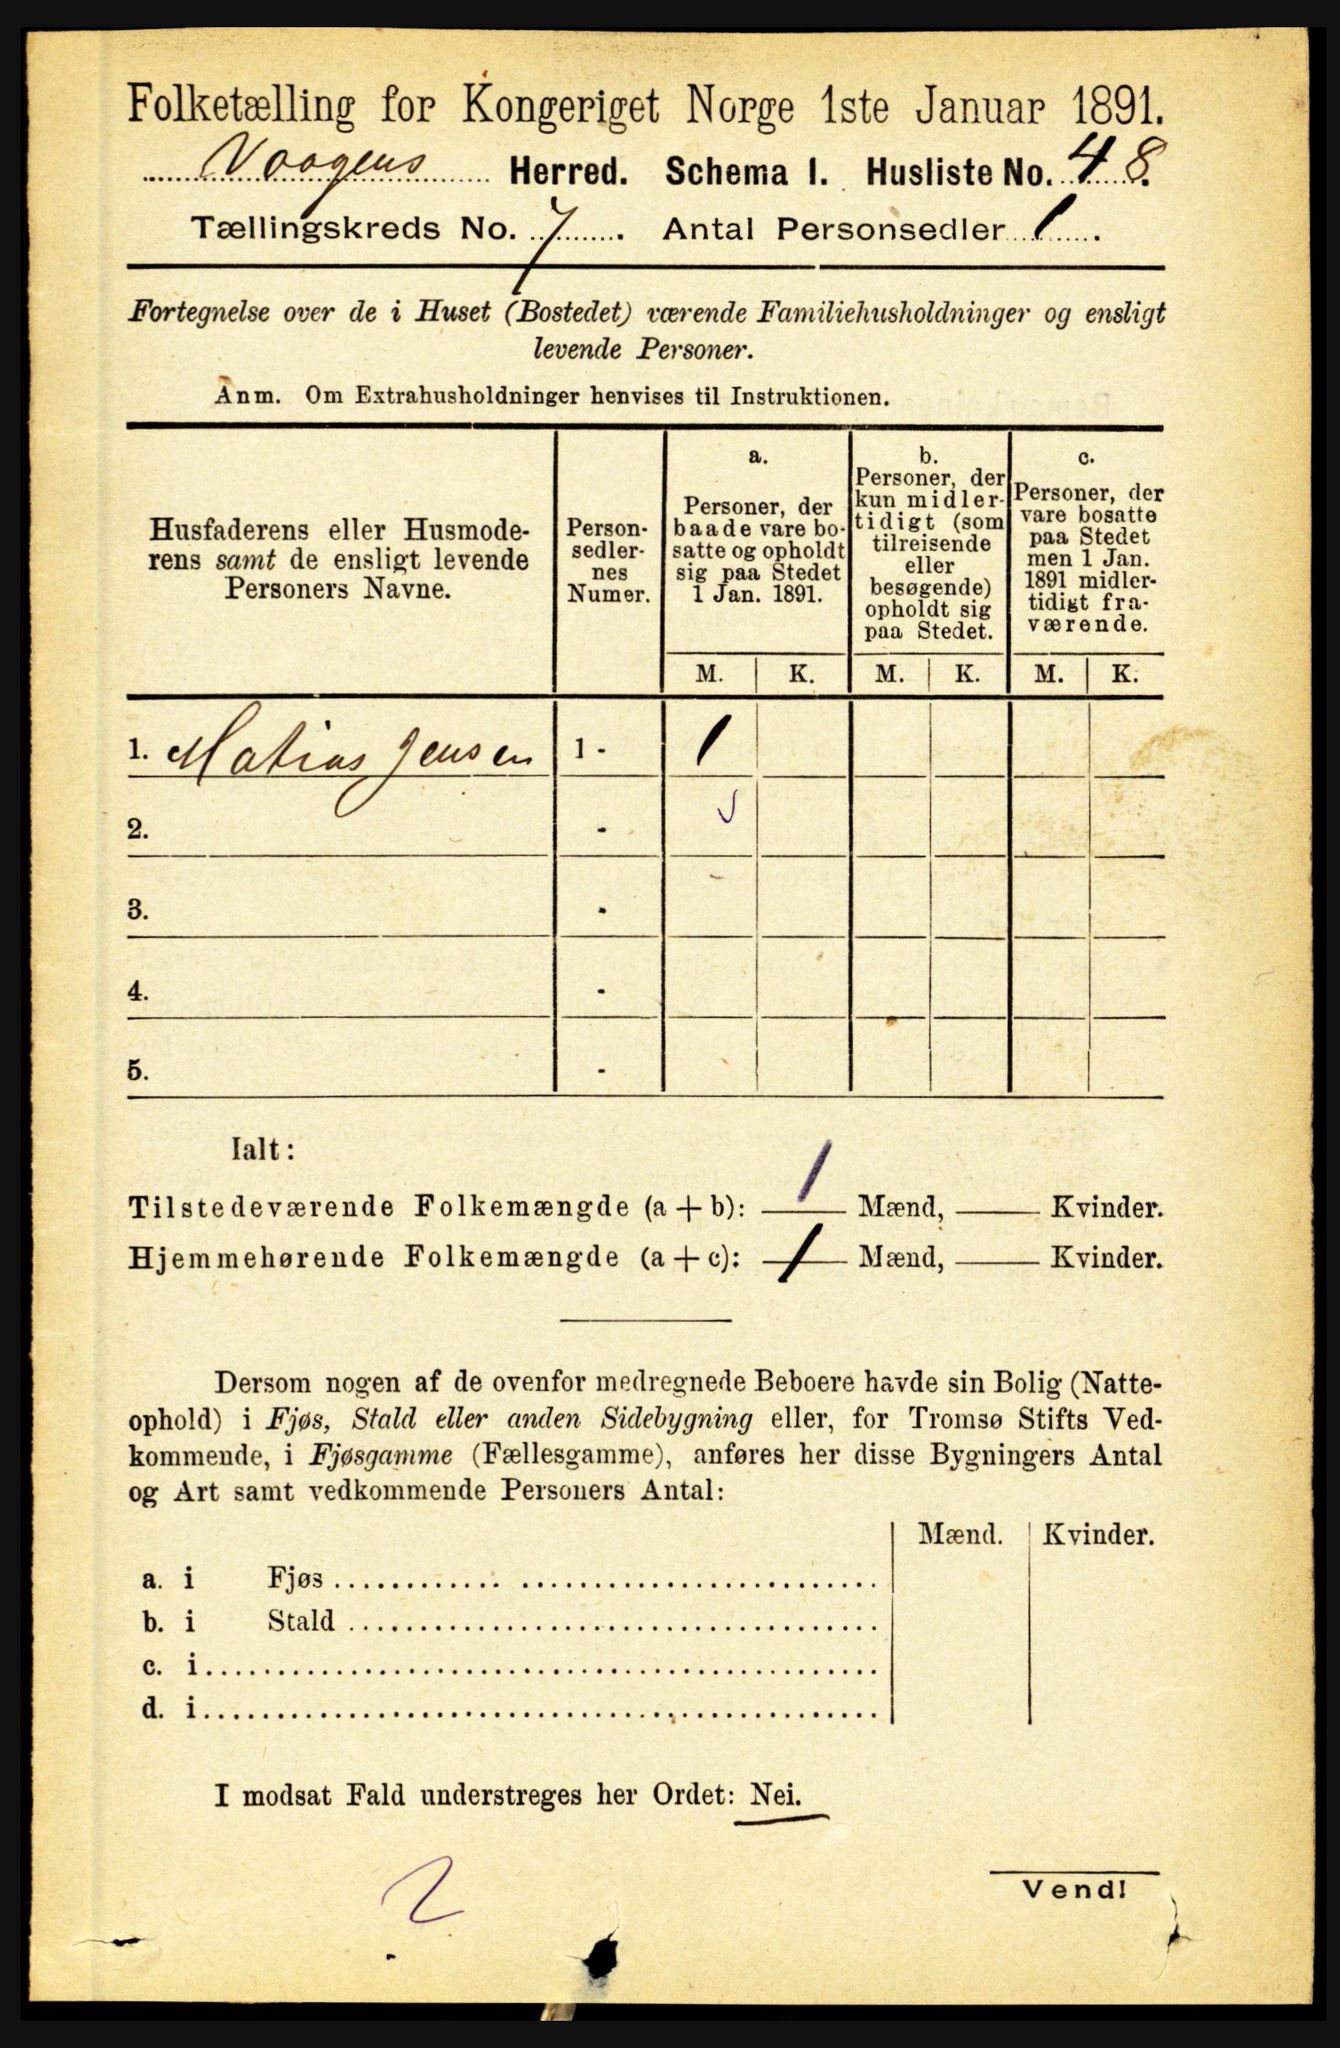 Folketælling for Kongeriget Norge 1ste Januar 1891.
Vaagens Herred. Schema I. Husliste No. 48.
Tællingskreds No. 7. Antal Personsedler 1.
Fortegnelse over de i Huset (Bostedet) værende Familiehusholdninger og ensligt
levende Personer.
Anm. Om Extrahusholdninger henvises til Instruktionen.
Husfaderens eller Husmode-
rens samt de ensligt levende
Personers Navne.
Person-
sedler-
nes
Numer.
a.
Personer, der
baade vare bo-
satte og opholdt
sig paa Stedet
1 Jan. 1891.
b.
Personer, der
kun midler-
tidigt (som
tilreisende
eller
besøgende)
opholdt sig
paa Stedet.
c.
Personer, der
vare bosatte
paa Stedet
men 1 Jan.
1891 midler-
tidigt fra-
værende.
M. K. M. K. M. K.
1. Matias Jensen 1 - 1
2. -
3. -
4. -
5. -
Ialt:
Tilstedeværende Folkemængde (a + b): 1 Mænd, Kvinder.
Hjemmehørende Folkemængde (a + c): 1 Mænd, Kvinder.
Dersom nogen af de ovenfor medregnede Beboere havde sin Bolig (Natte-
ophold) i Fjøs, Stald eller anden Sidebygning eller, for Tromsø Stifts Ved-
kommende, i Fjøsgamme (Fællesgamme), anføres her disse Bygningers Antal
og Art samt vedkommende Personers Antal:
Mænd. Kvinder.
a. i Fjøs
b. i Stald
c. i
d. i
I modsat Fald understreges her Ordet: Nei.
2
Vend!